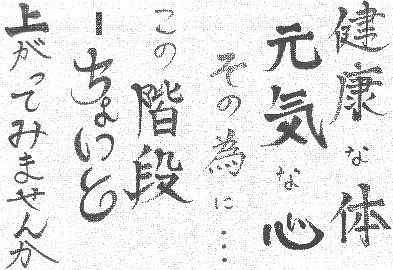 健康な体
元気な心
その為に…
この階段
ーちょいと
上がってみませんか